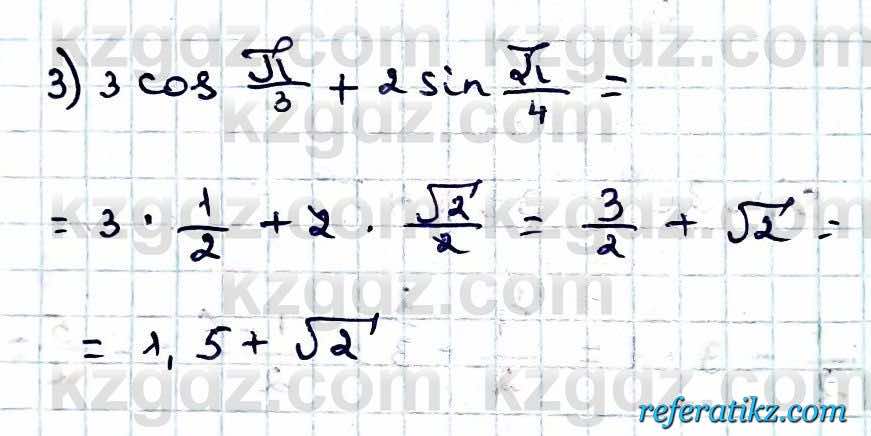 kzgdz.com kzgdz.com
3) 3 cos π/3 + 2 sin π/4 =
kzgdz.com
= 3 · 1/2 + 2 · √2/2 = 3/2 + √2 =
kzgdz.com kzgdz.com
kzgdz.com
= 1,5 + √2
kzgdz.com kzgdz.com
referatikz.com